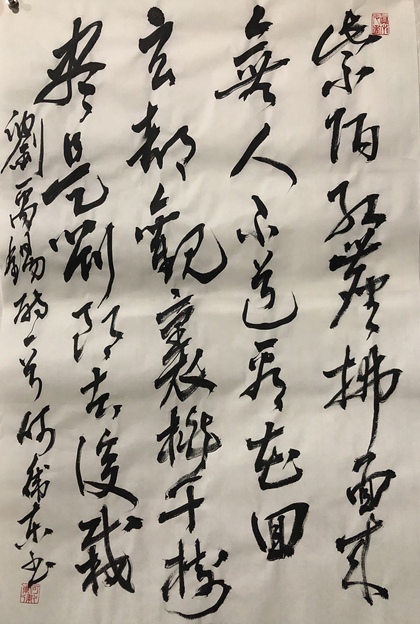 紫陌紅塵拂面來
無人不道看花回
玄都觀裏桃千樹
盡是劉郎去後栽
劉禹錫詩一首